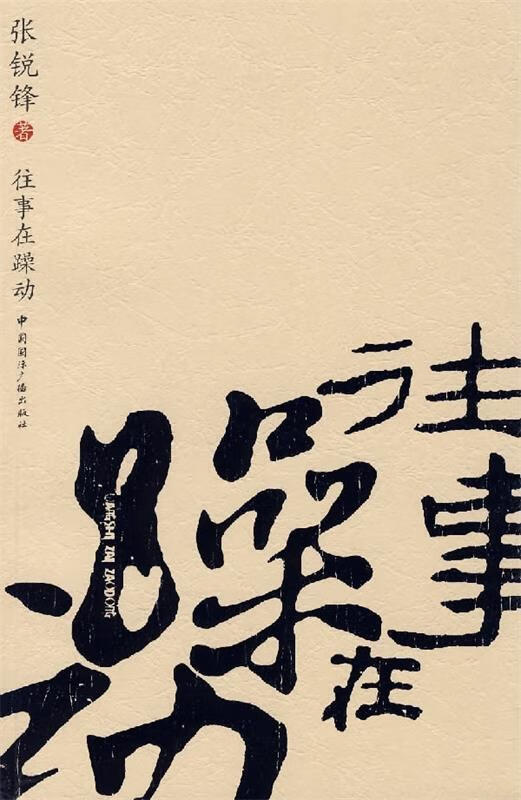 张锐锋 著
往事在躁动
中国国际广播出版社
往事
在
躁动
WANGSHI ZAI ZAODONG